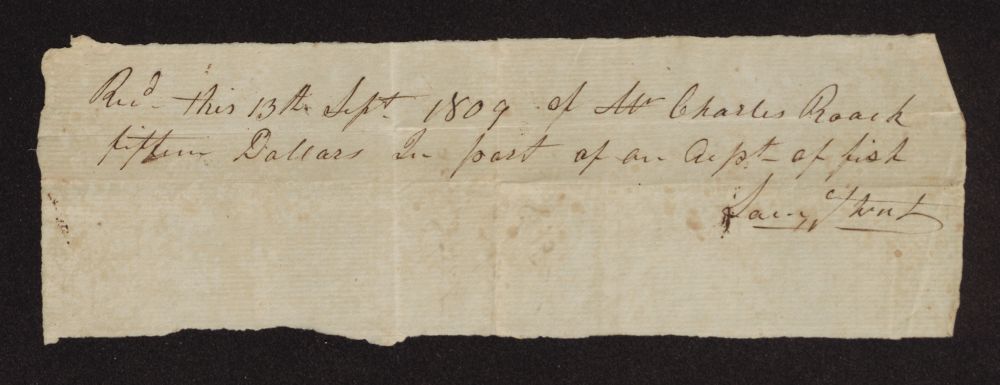 Recd. this 13th Sept. 1809 of Mr Charles Roach
fifteen Dollars In part of an Acpt of fish